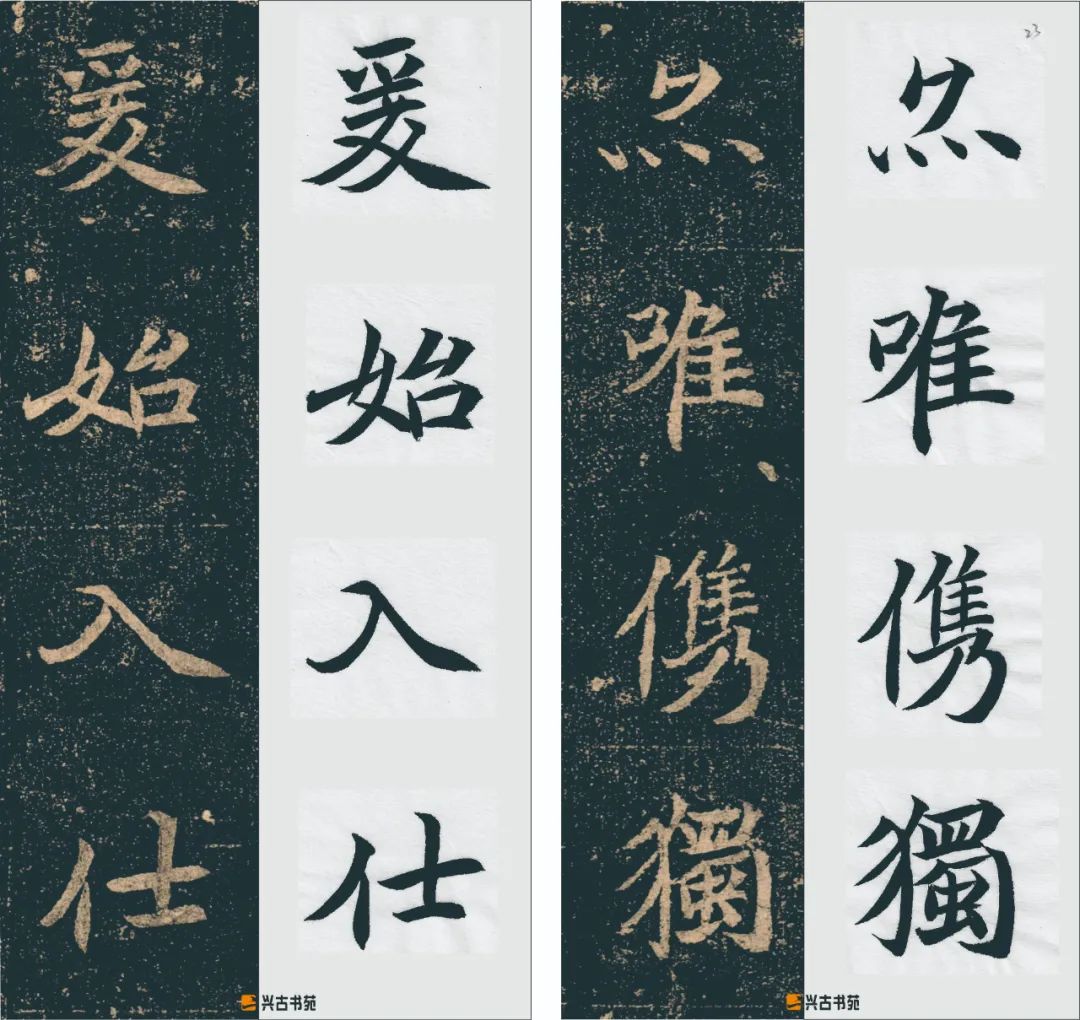 爰始入仕
爰始入仕
兴古书苑
23
唯儁獨
唯儁獨
兴古书苑